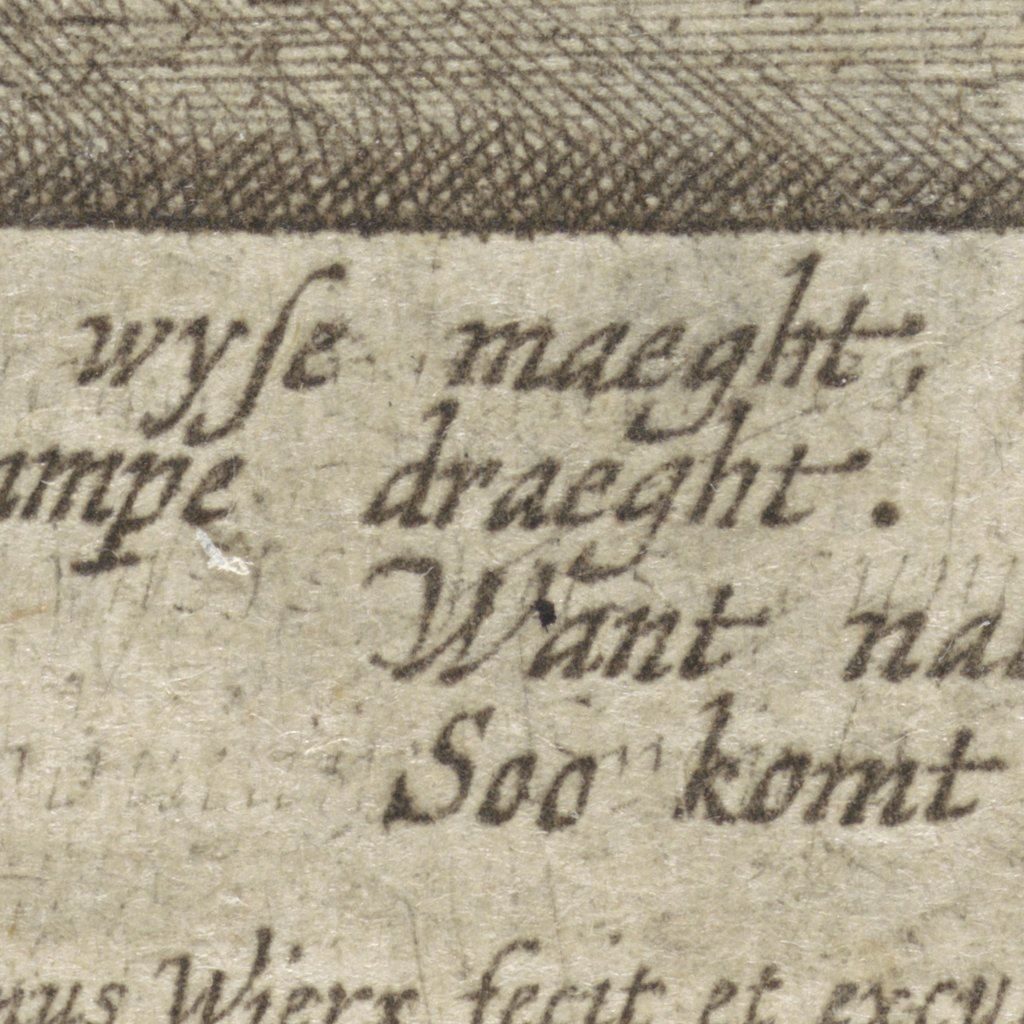 wyſe maeght,
ampe draeght.
Want na
Soo komt
Wierx fecit et excu